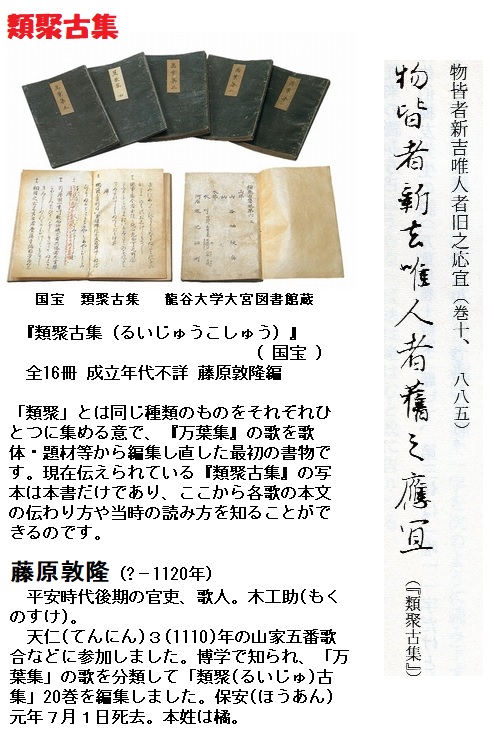 類聚古集
国宝　類聚古集　　龍谷大学大宮図書館蔵
『類聚古集（るいじゅうこしゅう）』
（ 国宝 ）
全16冊 成立年代不詳 藤原敦隆編
「類聚」とは同じ種類のものをそれぞれひ
とつに集める意で、『万葉集』の歌を歌
体・題材等から編集し直した最初の書物で
す。現在伝えられている『類聚古集』の写
本は本書だけであり、ここから各歌の本文
の伝わり方や当時の読み方を知ることがで
きるのです。
藤原敦隆（?－1120年）
　平安時代後期の官吏、歌人。木工助(もく
のすけ)。
　天仁(てんにん)３(1110)年の山家五番歌
合などに参加しました。博学で知られ、「万
葉集」の歌を分類して「類聚(るいじゅ)古
集」20巻を編集しました。保安(ほうあん)
元年７月１日死去。本姓は橘。
物皆者新吉唯人者旧之応宜（巻十、　八八五）
物皆者新吉唯人者舊之應宜（『類聚古集』）